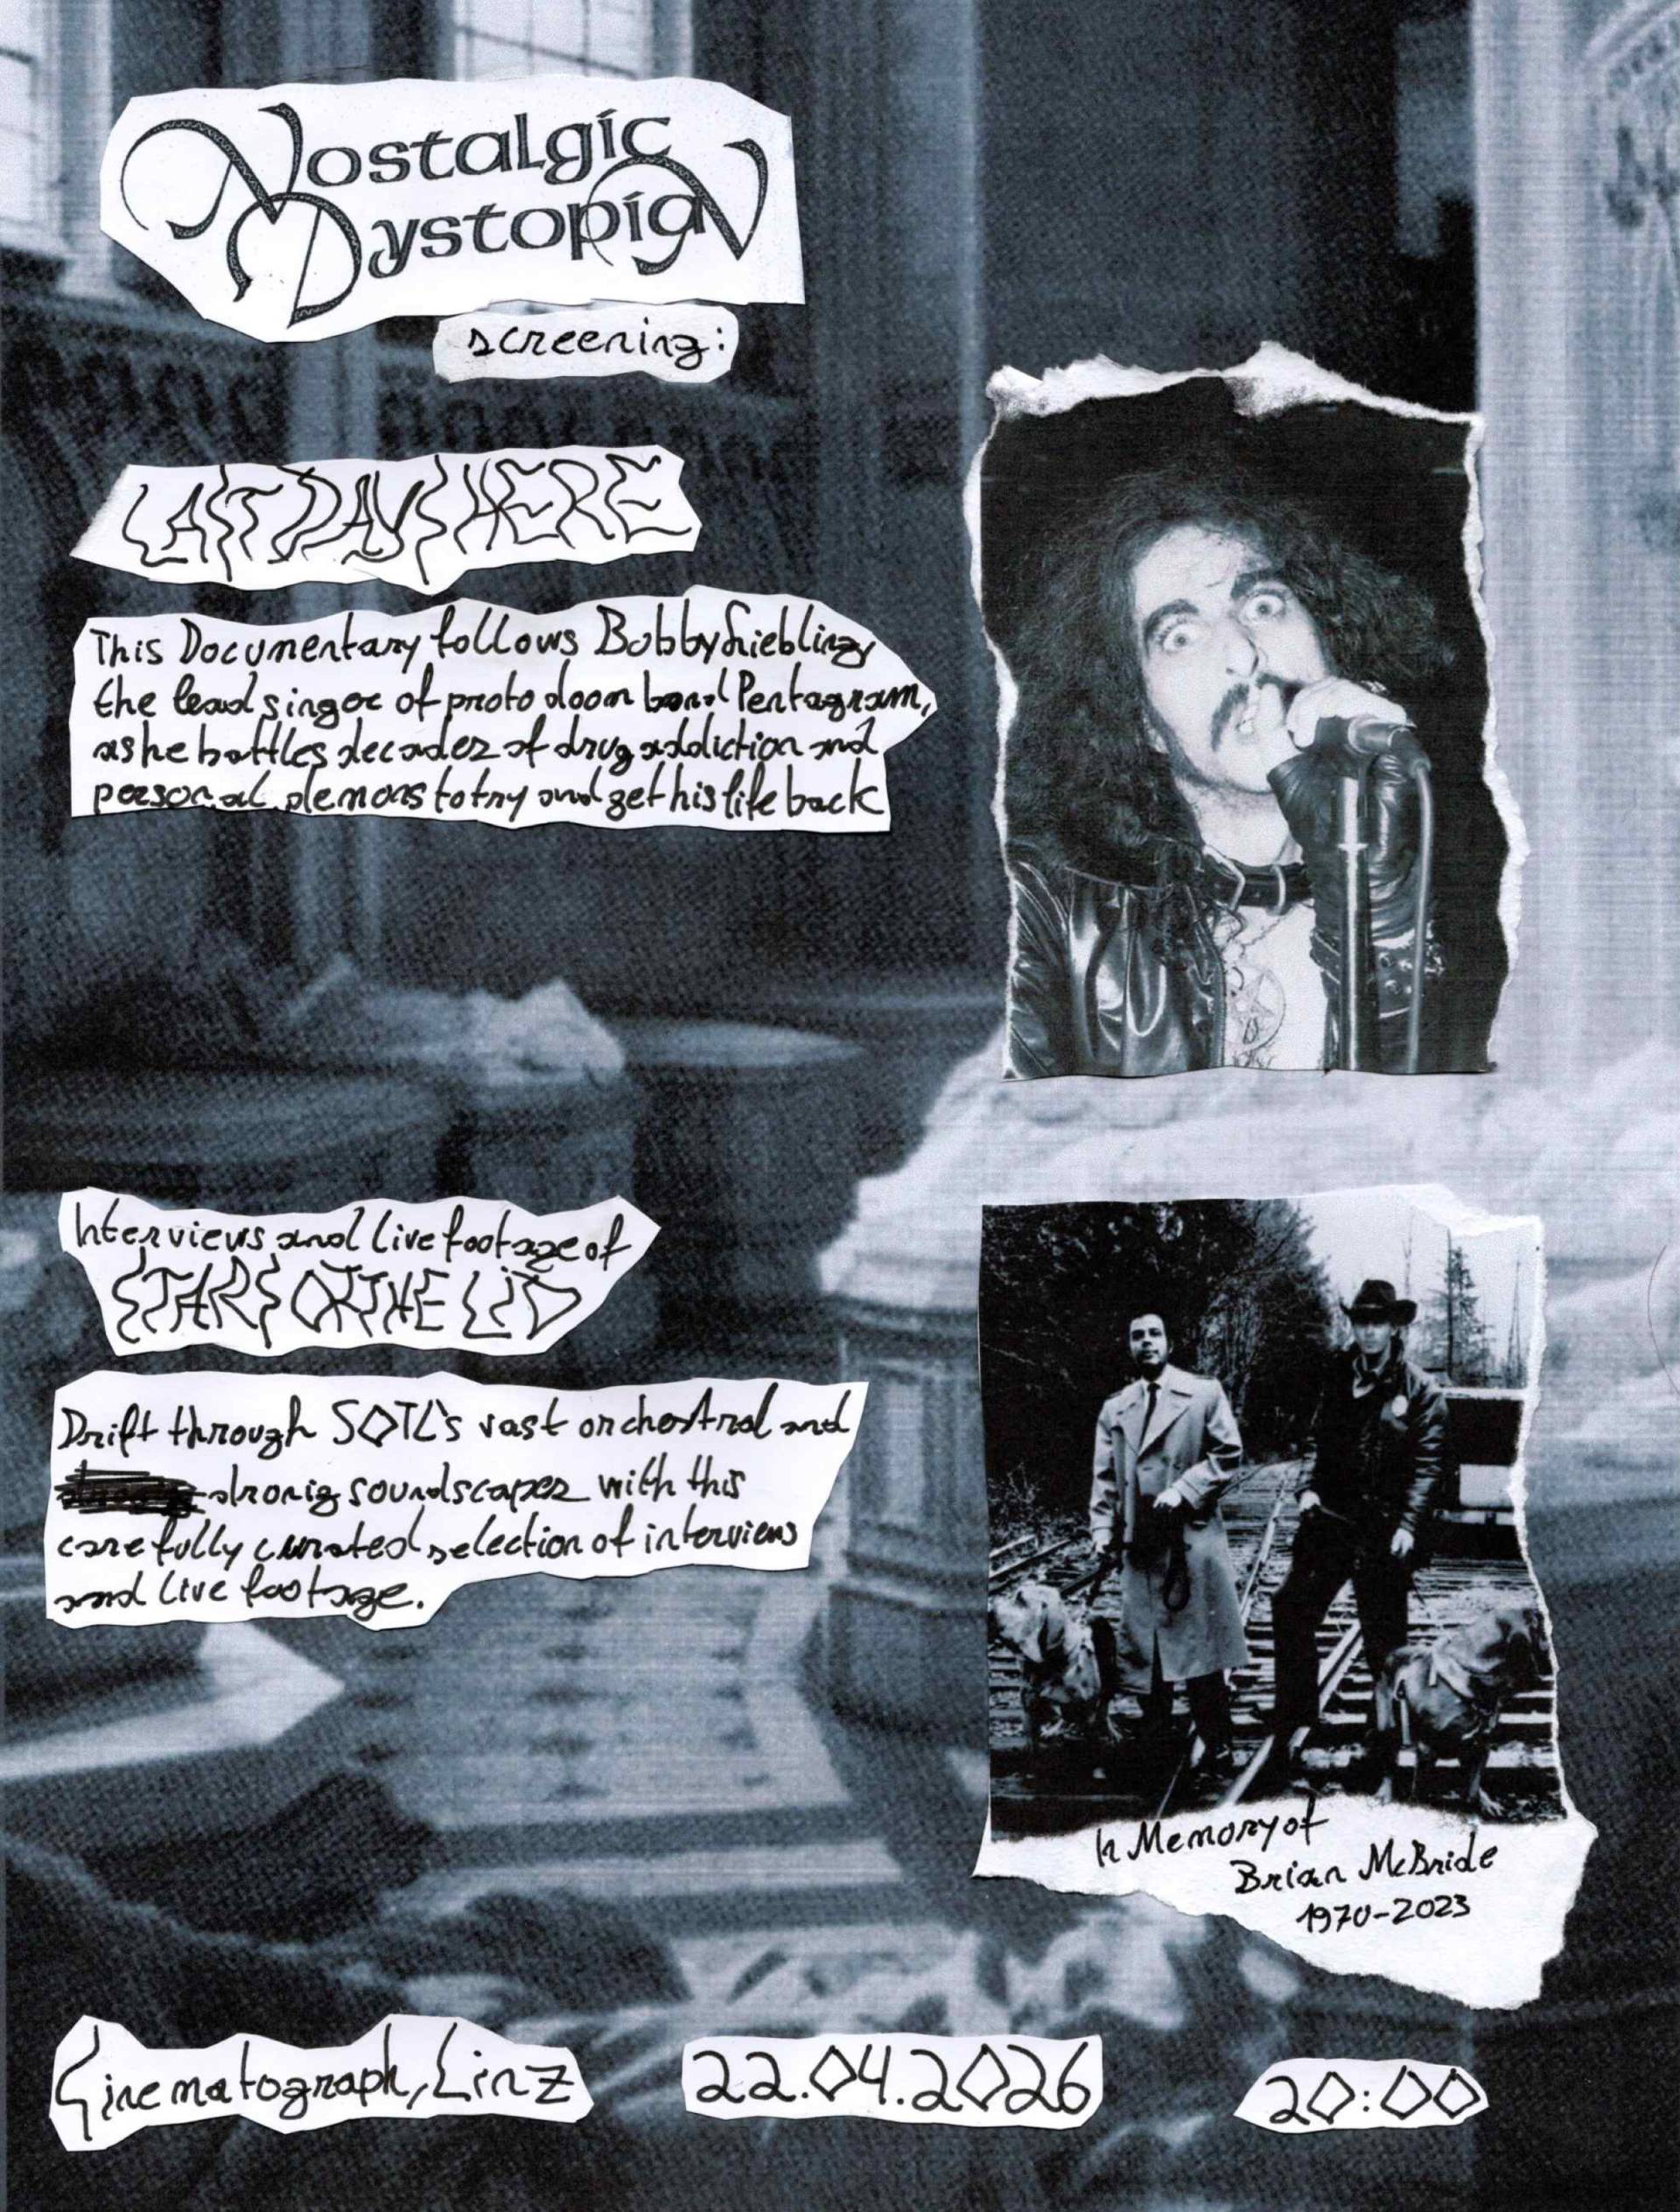 Nostalgic
Dystopia
screening:
LAST DAYS HERE
This Documentary follows Bobby Liebling,
the lead singer of proto doom band Pentagram,
as he battles decades of drug addiction and
personal demons to try and get his life back
Interviews and live footage of
STARS OF THE LID
Drift through SOTL's vast orchestral and
dronig soundscapes with this
carefully curated selection of interviews
and live footage.
In Memory of
Brian McBride
1970-2023
Cinematograph, Linz
22.04.2026
20:00